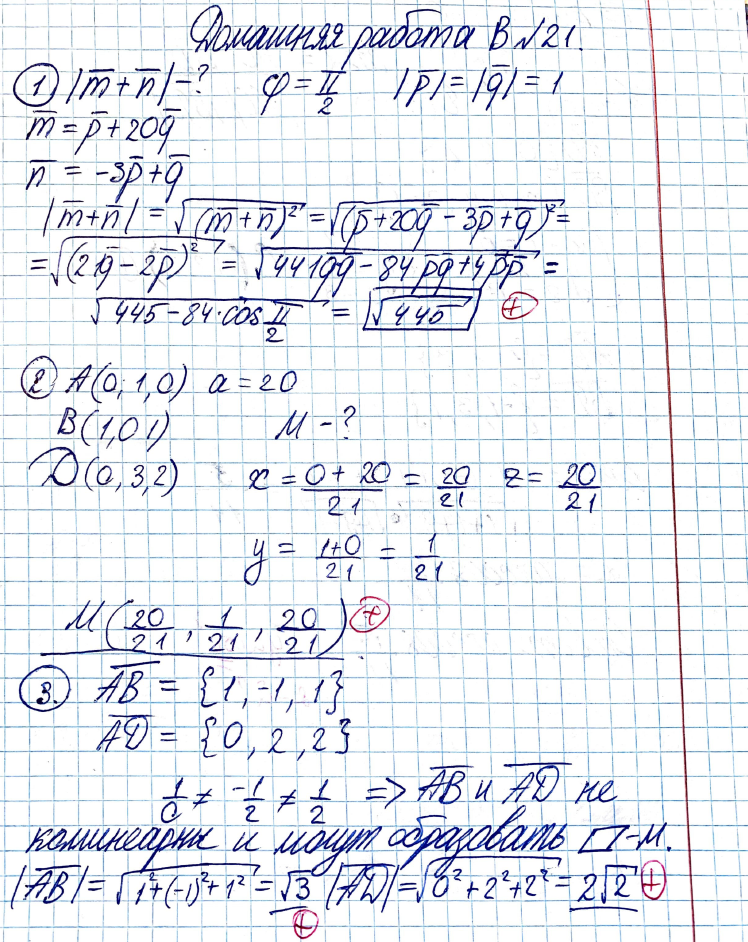 Домашняя работа В №21.
① |m̅ + n̅| - ? φ = π/2 |p̅| = |q̅| = 1
m̅ = p̅ + 20q̅
n̅ = -3p̅ + q̅
|m̅+n̅| = √(m̅ + n̅)² = √(p̅ + 20q̅ - 3p̅ + q̅)² =
= √(21q̅ - 2p̅)² = √441q̅q̅ - 84p̅q̅ + 4p̅p̅ =
√445 - 84·cos π/2 = √445 +
② A(0, 1, 0) a = 20
B(1, 0 1) M - ?
D(0, 3, 2) x = 0 + 20/21 = 20/21 z = 20/21
y = 1+0/21 = 1/21
M(20/21, 1/21, 20/21) +
③. A̅B̅ = {1, -1, 1}
A̅D̅ = {0, 2, 2}
1/0 ≠ -1/2 ≠ 1/2 => A̅B̅ и A̅D̅ не
коллинеарны и могут образовать ▱-м.
|A̅B̅| = √1² + (-1)² + 1² = √3 |A̅D̅| = √0² + 2² + 2² = 2√2 +
+